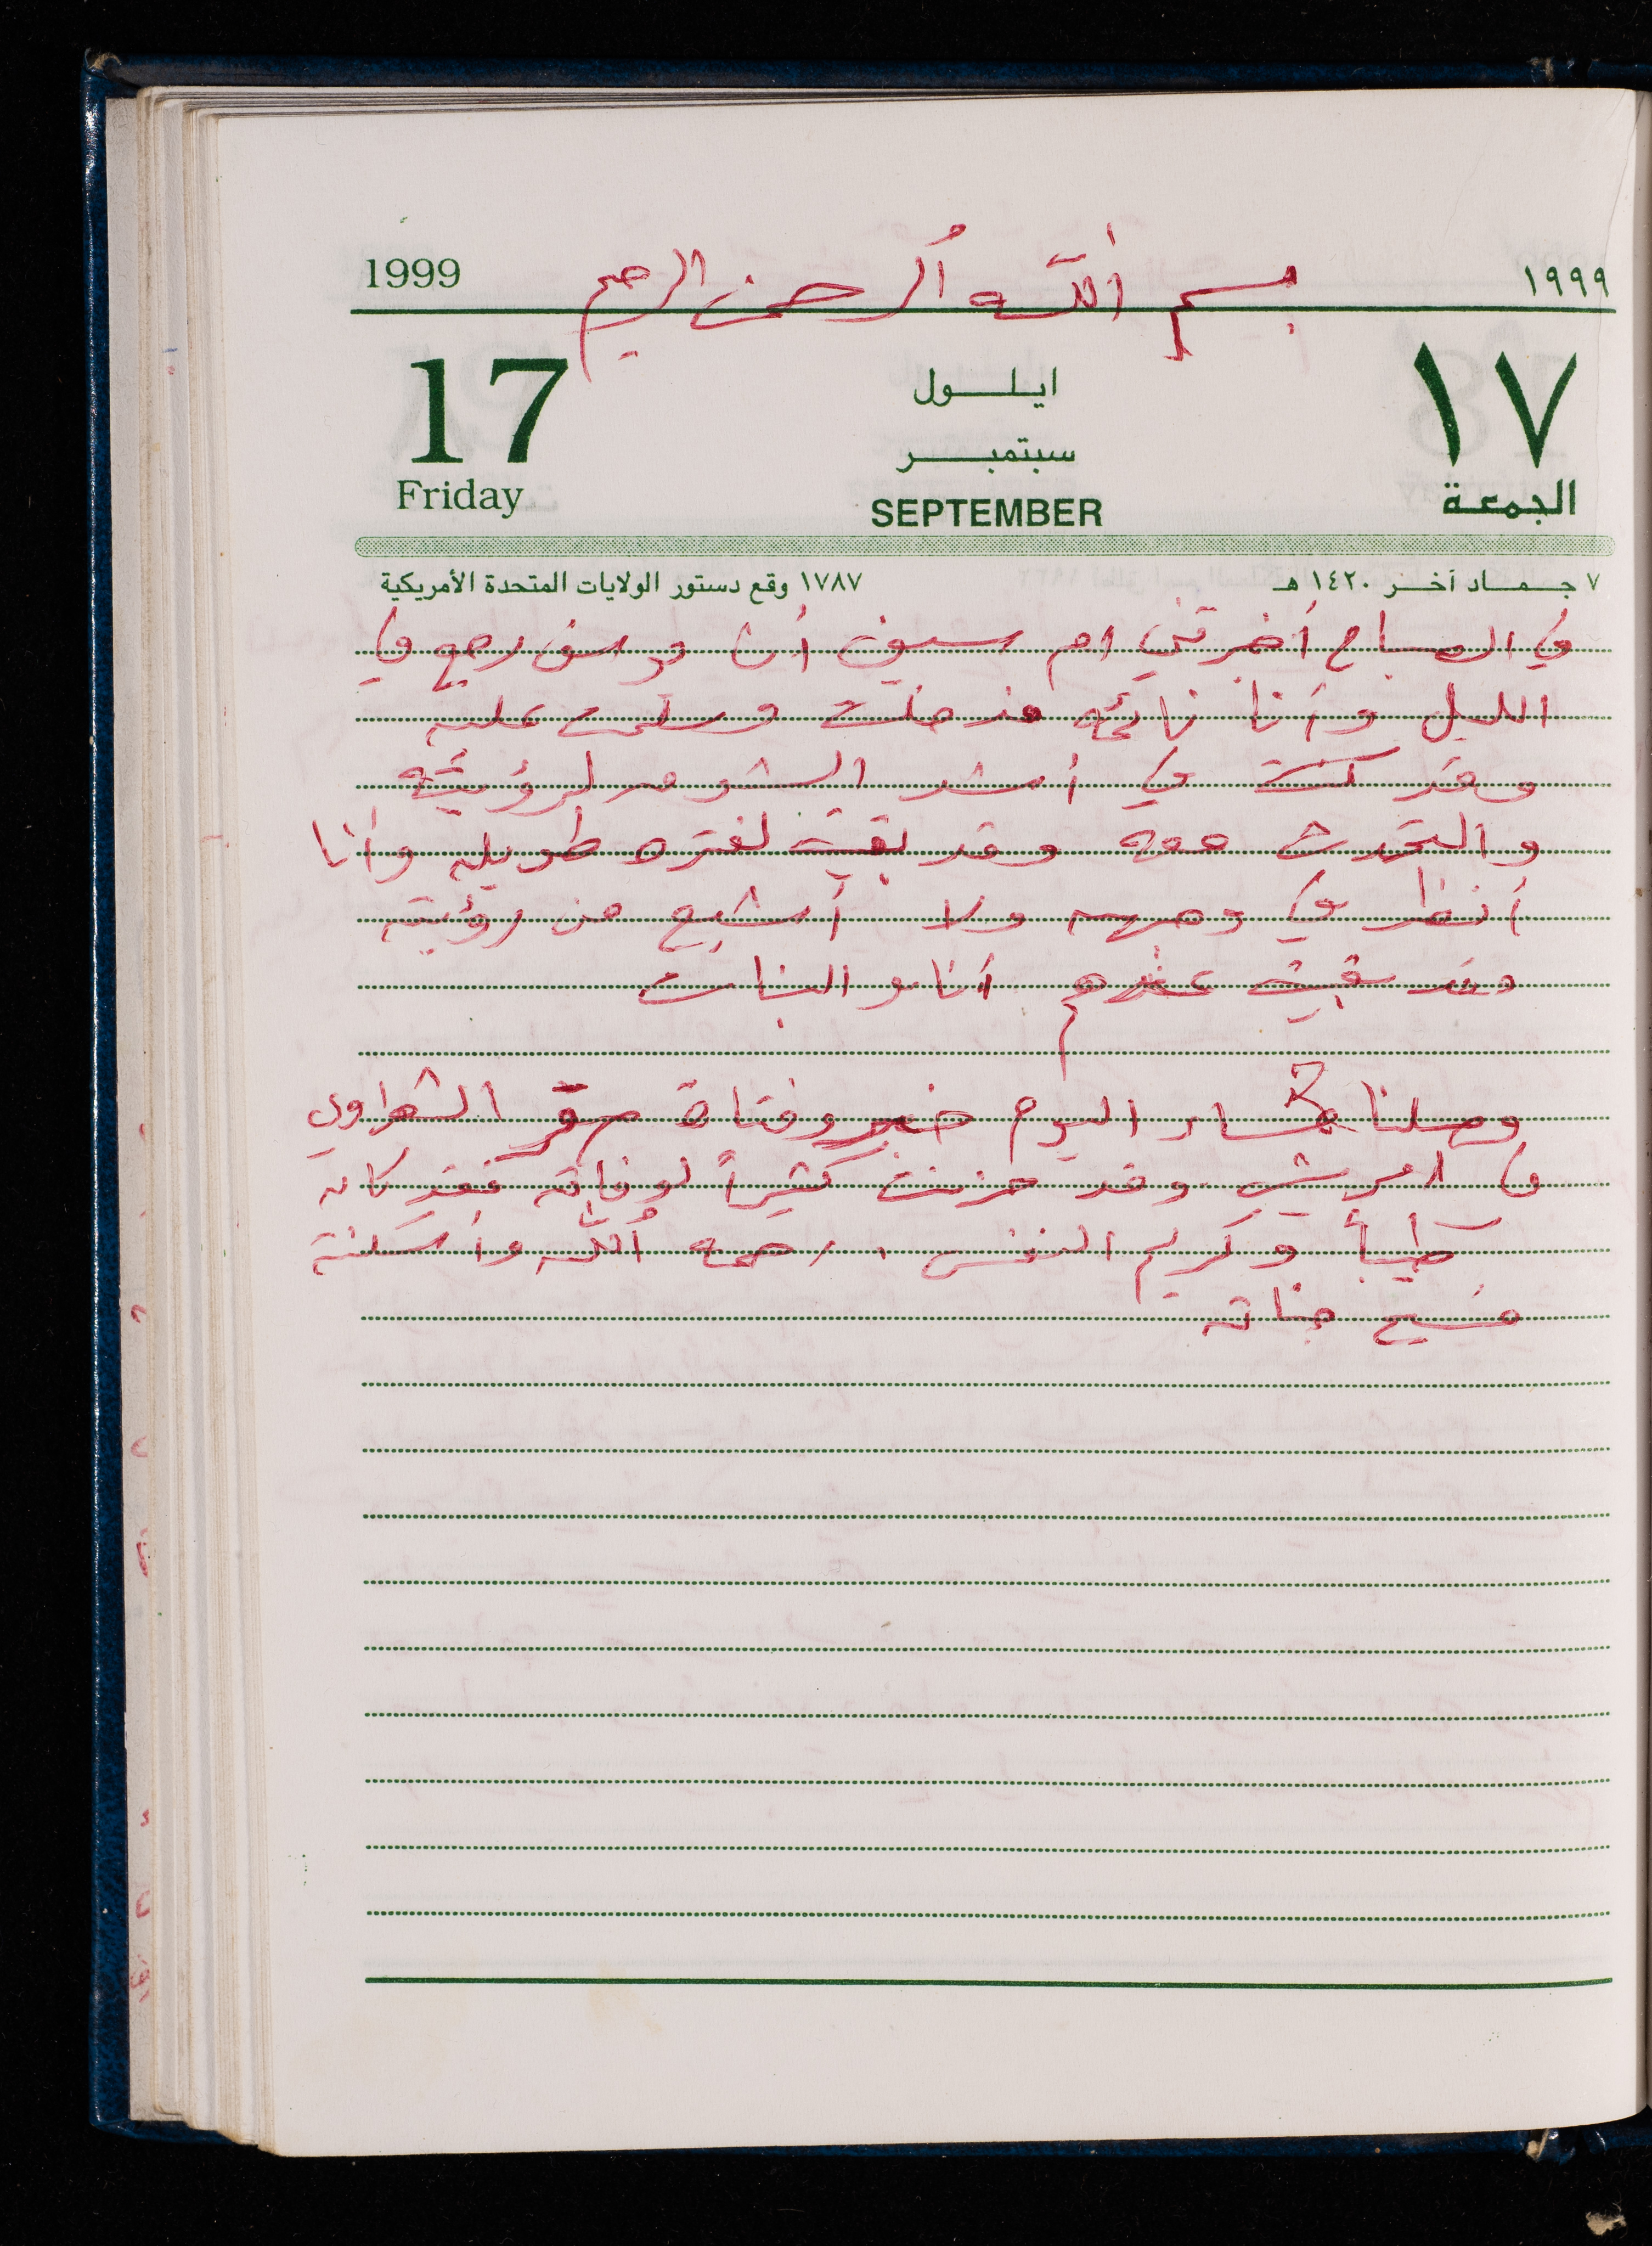 1999 بسم الله الرحمن الرحيم ١٩٩٩
17 ايلول ١٧
سبتمبر
Friday SEPTEMBER الجمعة
٧ جماد آخر ١٤٢٠ هـ ١٧٨٧ وقع دستور الولايات المتحدة الأمريكية
في الصباح أخبرتني ام سيف أن يوسف رجع في
الليل وأنا نائمه فدخلت وسلمت عليه
وقد كنت في أشد الشوق لرؤيته
والتحدث معه وقد بقيت لفتره طويله وأنا
أنظر في وجهه ولا أشبع من رؤيته
وقد بقيت عندهم أنا والبنات
وصلنا مساء اليوم خبر وفتاة صقر الشعراوي
في وقد حزنت كثيراً لوفاته فقد كان
طيباً وكريم النفس، رحمه الله وأسكنة
فسيح جناته